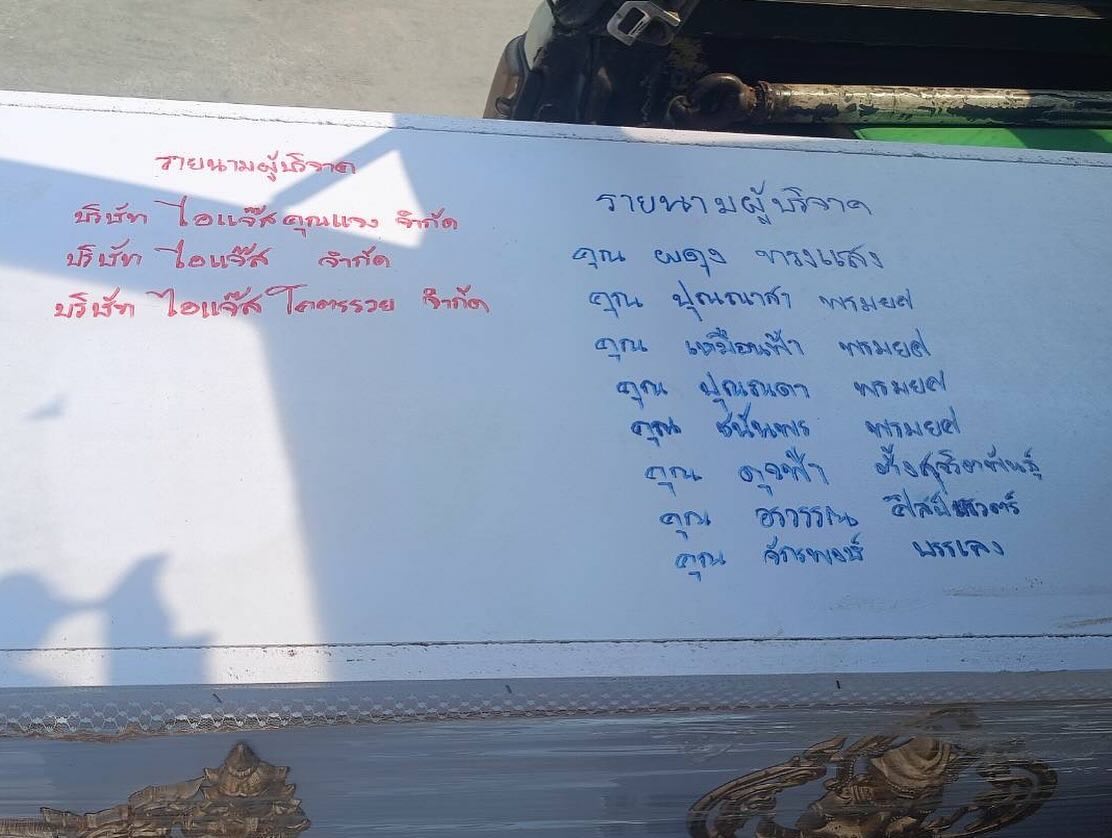 รายนามผู้บริจาค
บริษัท ไอแจ๊สคุณแจง จำกัด
บริษัท ไอแจ๊ส จำกัด
บริษัท ไอแจ๊ส โคตรรวย จำกัด
รายนามผู้บริจาค
คุณ ผดุง ทรงแสง
คุณ ปุณณาสา พรมยศ
คุณ เหมือนฟ้า พรมยศ
คุณ ปุณณดา พรมยศ
คุณ ชนันพร พรมยศ
คุณ ดุจฟ้า
คุณ อรวรรณ
คุณ จักรพงษ์ บรรเลง